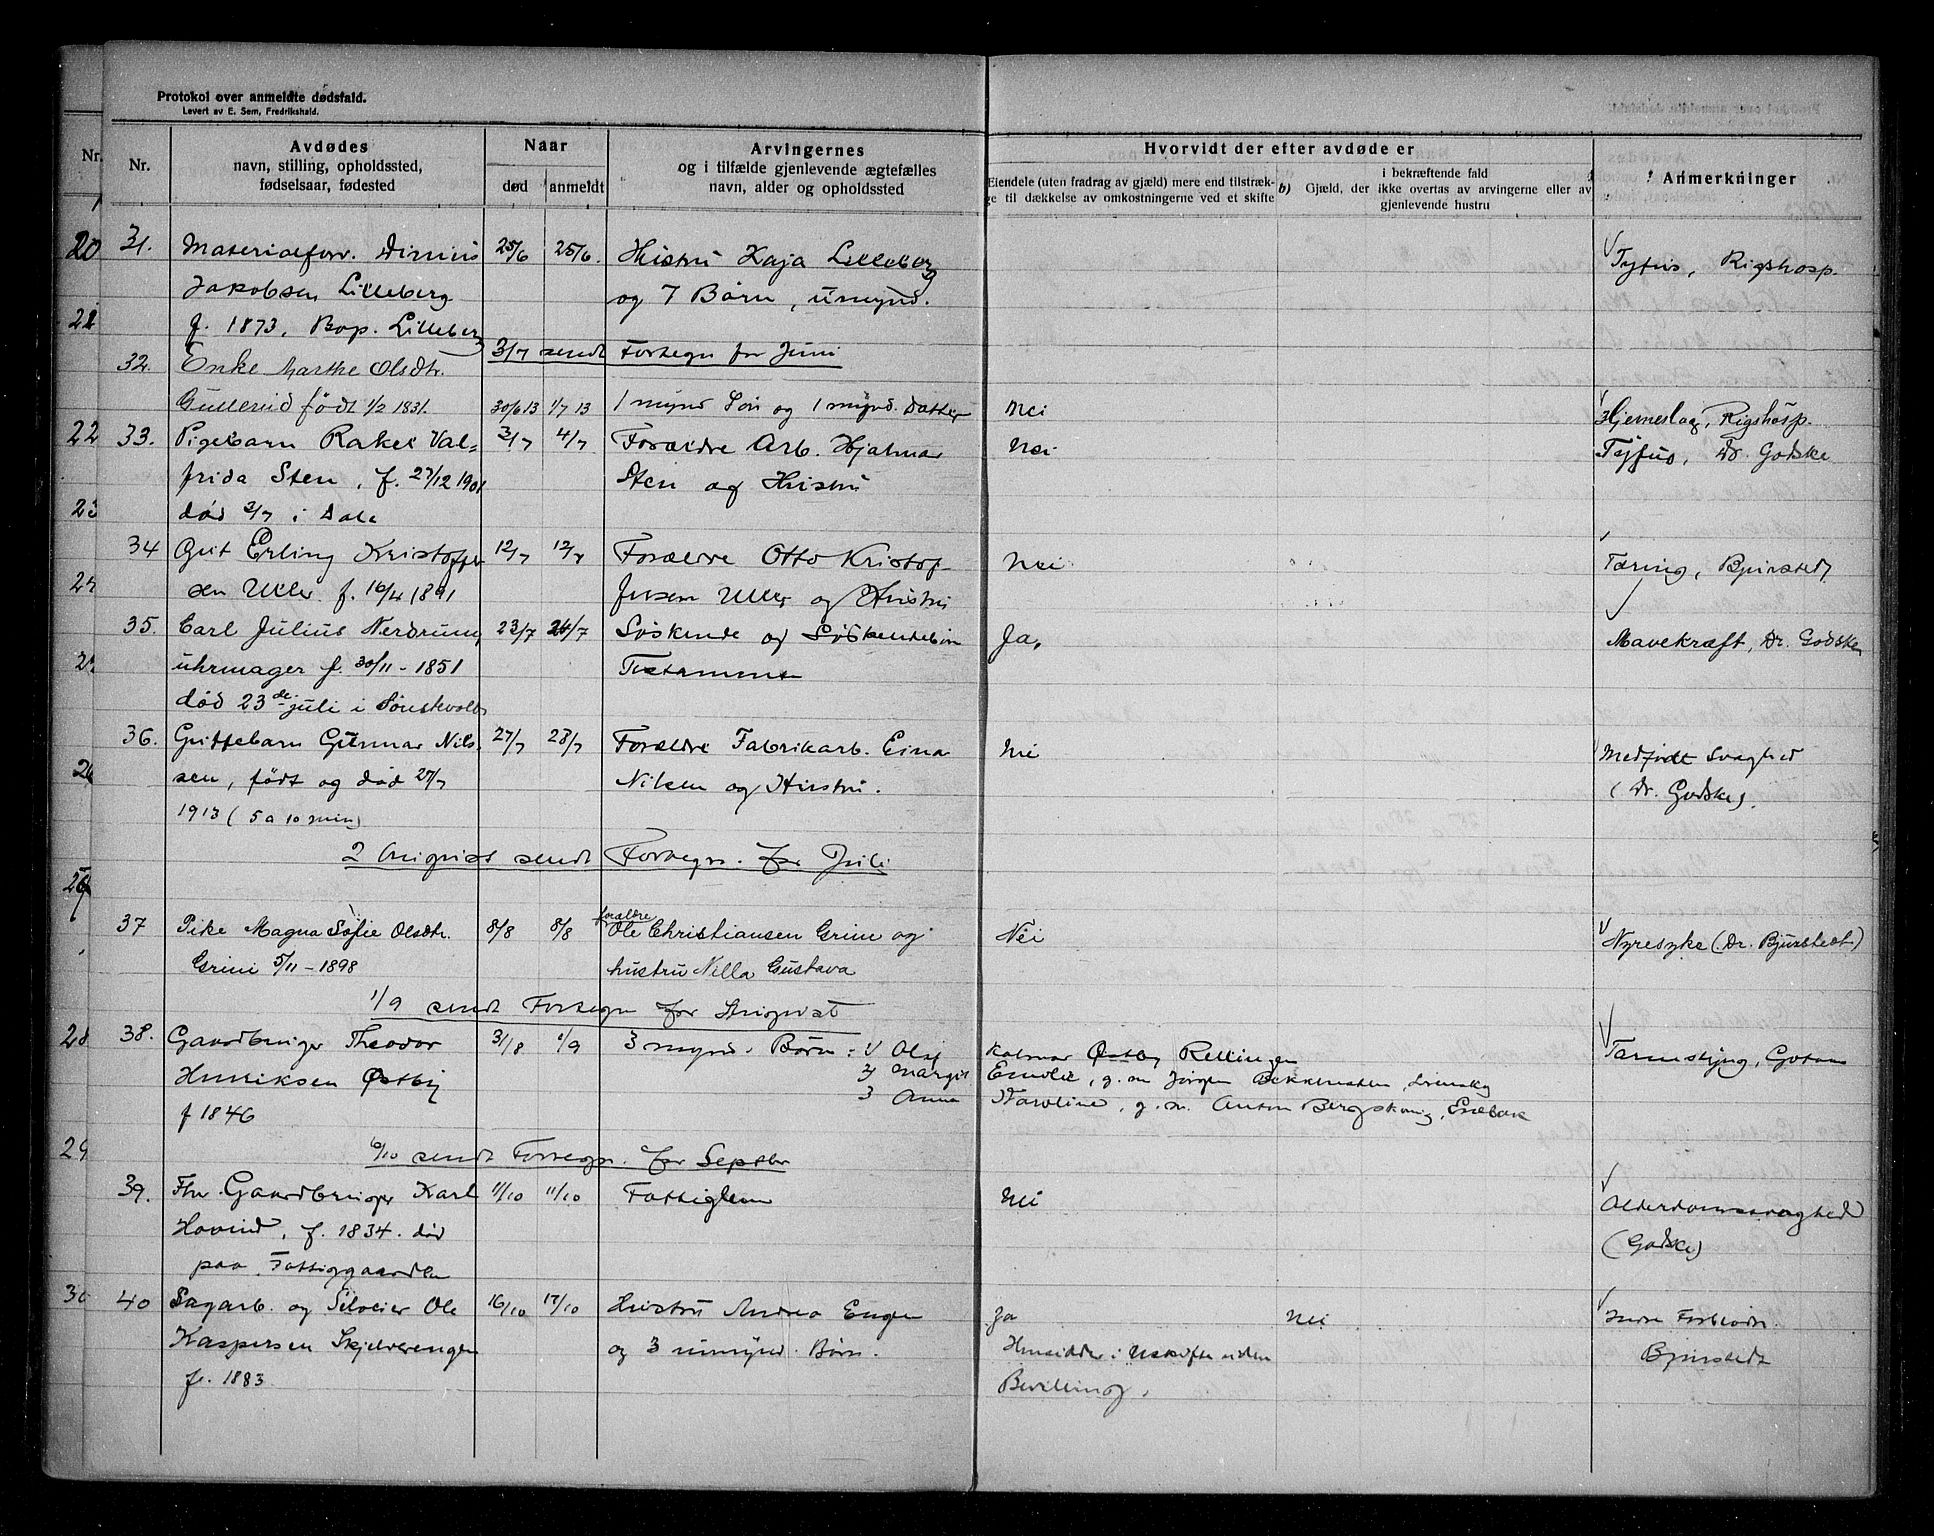 Protokol over anmeldte dødsfald.
Levert av E. Sem, Fredrikshald.
Nr.
Nr.
Avdødes
navn, stilling, opholdssted,
fødselsaar, fødested
Naar
død
anmeldt
Arvingernes
og i tilfælde gjenlevende ægtefælles
navn, alder og opholdssted
Hvorvidt der efter avdøde er
Eiendele (uten fradrag av gjæld) mere end tilstræk-
ge til dækkelse av omkostningerne ved et skifte
b)
i bekræftende fald
Gjæld, der ikke overtas av arvingerne eller av
gjenlevende hustru
Anmerkninger
20
31. Materialforv. 25/6 25/6. Hustru Kaja Lilleberg Tyfus, Rigshosp.
Jakobsen Lilleberg og 7 Børn, umynd.
21
f. 1873, Bop. Lilleberg
3/7 sendt Fortegn for Juni
32. Enke Marthe Olsdtr.
Gullerud født 1/2 1831. 30/6 13 1/7 13 1 mynd Søn og 1 mynd. Datter Nei Hjerneslag, Rigshosp.
22
33. Pigebarn Rakel Val- 3/7 4/7 Forældre Arb. Hjalmar Nei Tyfus, Dr. Godske
frida Sten, f. 27/12 1901 Sten og Hustru
23
død 3/7 i Dale
34 Gut Erling Kristoffer- 12/7 12/7 Forældre Otto Kristof- Nei Tæring, Bjurstedt
24
sen Uller f. 16/4 1891 fersen Uller og Hustru
35. Carl Julius Nerdrum, 23/7 24/7 Søskende og Søskendebørn Ja, Mavekræft, Dr. Godske
25
uhrmager f. 30/11 - 1851 Testamente
død 23de juli i
36. Guttebarn Gunnar Nils- 27/7 28/7 Forældre Fabrikarb. Einar Nei Medfødt Svaghed
26
sen, født og død 27/7 Nilsen og Hustru. (Dr. Godske).
1913 (5 a 10 min)
2 August sendt Fortegn. for Juli
37 Pike Magna Sofie Olsdtr. 8/8 8/8 forældre Ole Christiansen Grini og Nei Nyresyke (Dr. Bjurstedt)
Grini 5/11 - 1898 hustru Nilla Gustava
1/9 sendt Fortegn for August
28
38. Gaardbruger Theodor 31/8 1/9 3 mynd. Børn: 1) Olaf Østby
Henriksen Østby 2) Margit Emilie, g. m. Jørgen
f 1846 3) Anna Karoline, g. m. Anton Enebak
29
6/10 sendt Fortegn. for Septbr
39. Fhv. Gaardbruger Karl 11/10 11/10 Fattiglem Nei Alderdomssvaghed
Hovind, f. 1834. død (Godske)
paa Fattiggaarden
30
40 Sagarb. og Selveier Ole 16/10 17/10 Hustru Andrea Engen Ja Nei Indre Forblødn.
Kaspersen Skjelverengen og 3 umynd. Børn. Hensidder i Uskifte uden Bjurstedt
f. 1883 Bevilling.